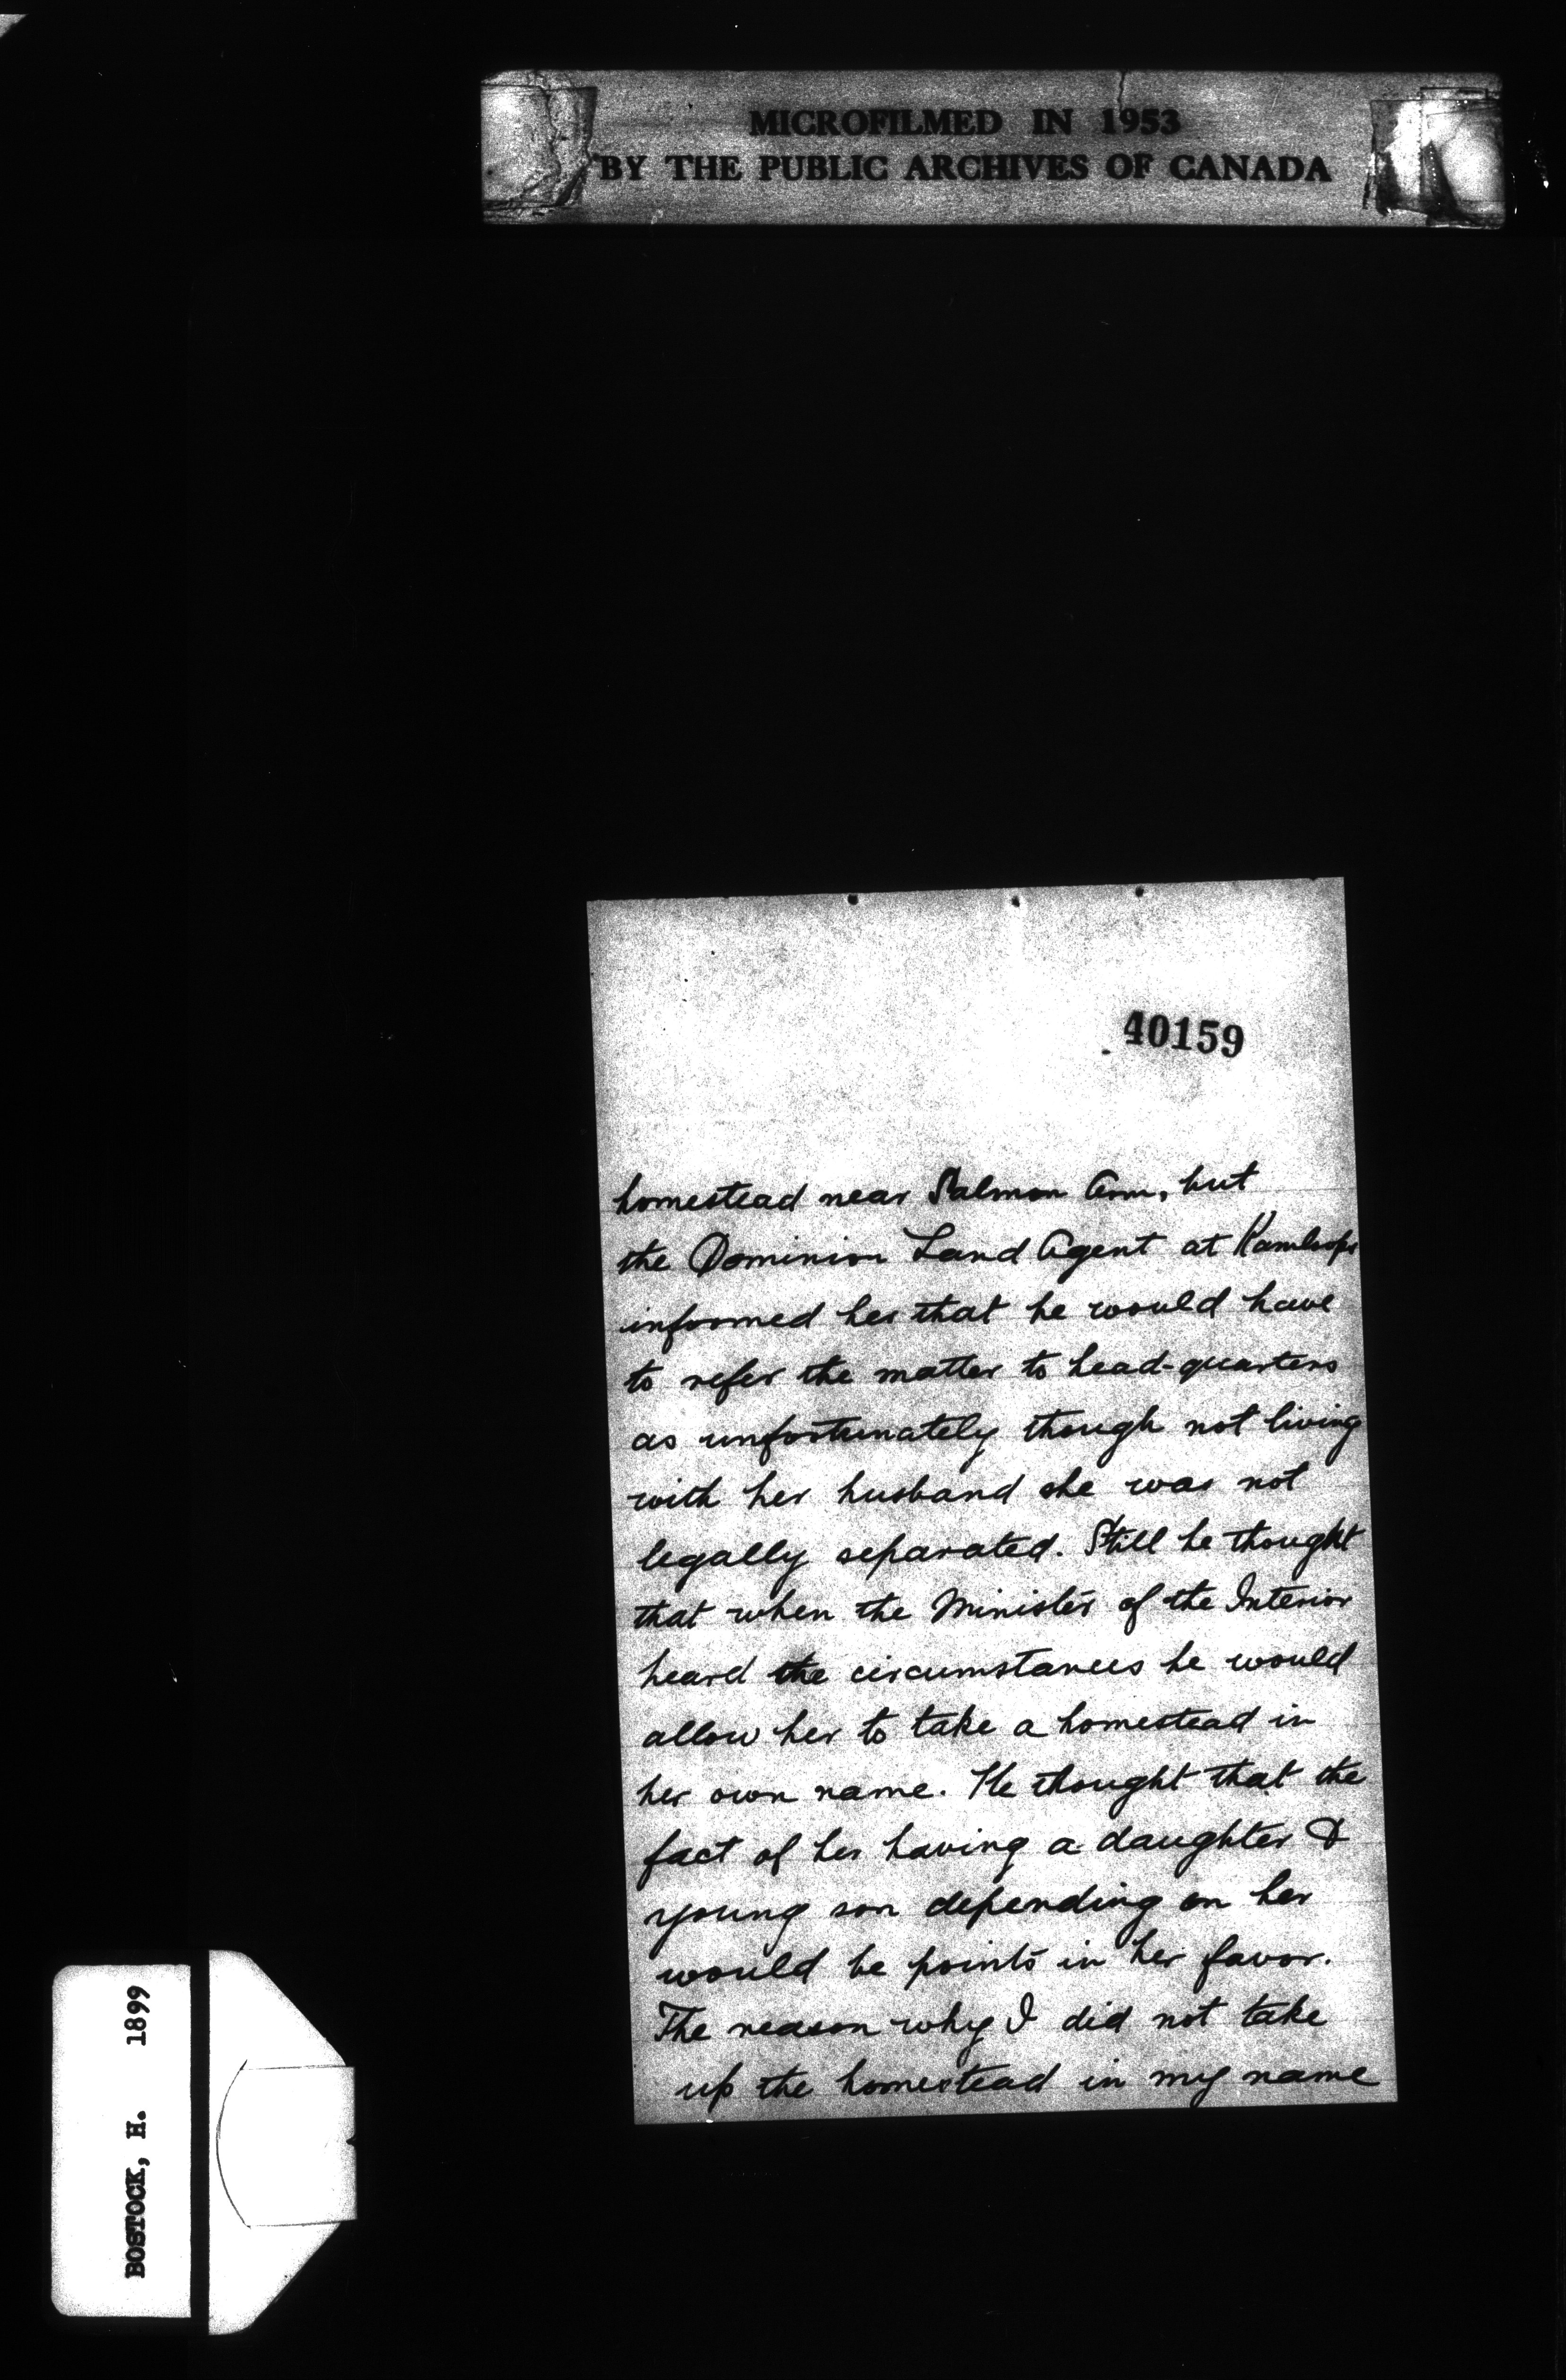 MICROFILMED IN 1953
BY THE PUBLIC ARCHIVES OF CANADA
40159
homestead near Salmon Arm, but
the Dominion Land Agent at Kamloops
informed her that he would have
to refer the matter to head-quarters
as unfortunately though not living
with her husband she was not
legally separated. Still he thought
that when the Minister of the Interior
heard the circumstances he would
allow her to take a homestead in
her own name. He thought that the
fact of her having a daughter &
young son depending on her
would be points in her favor.
The reason why I did not take
up the homestead in my name
BOSTOCK, H. 1899